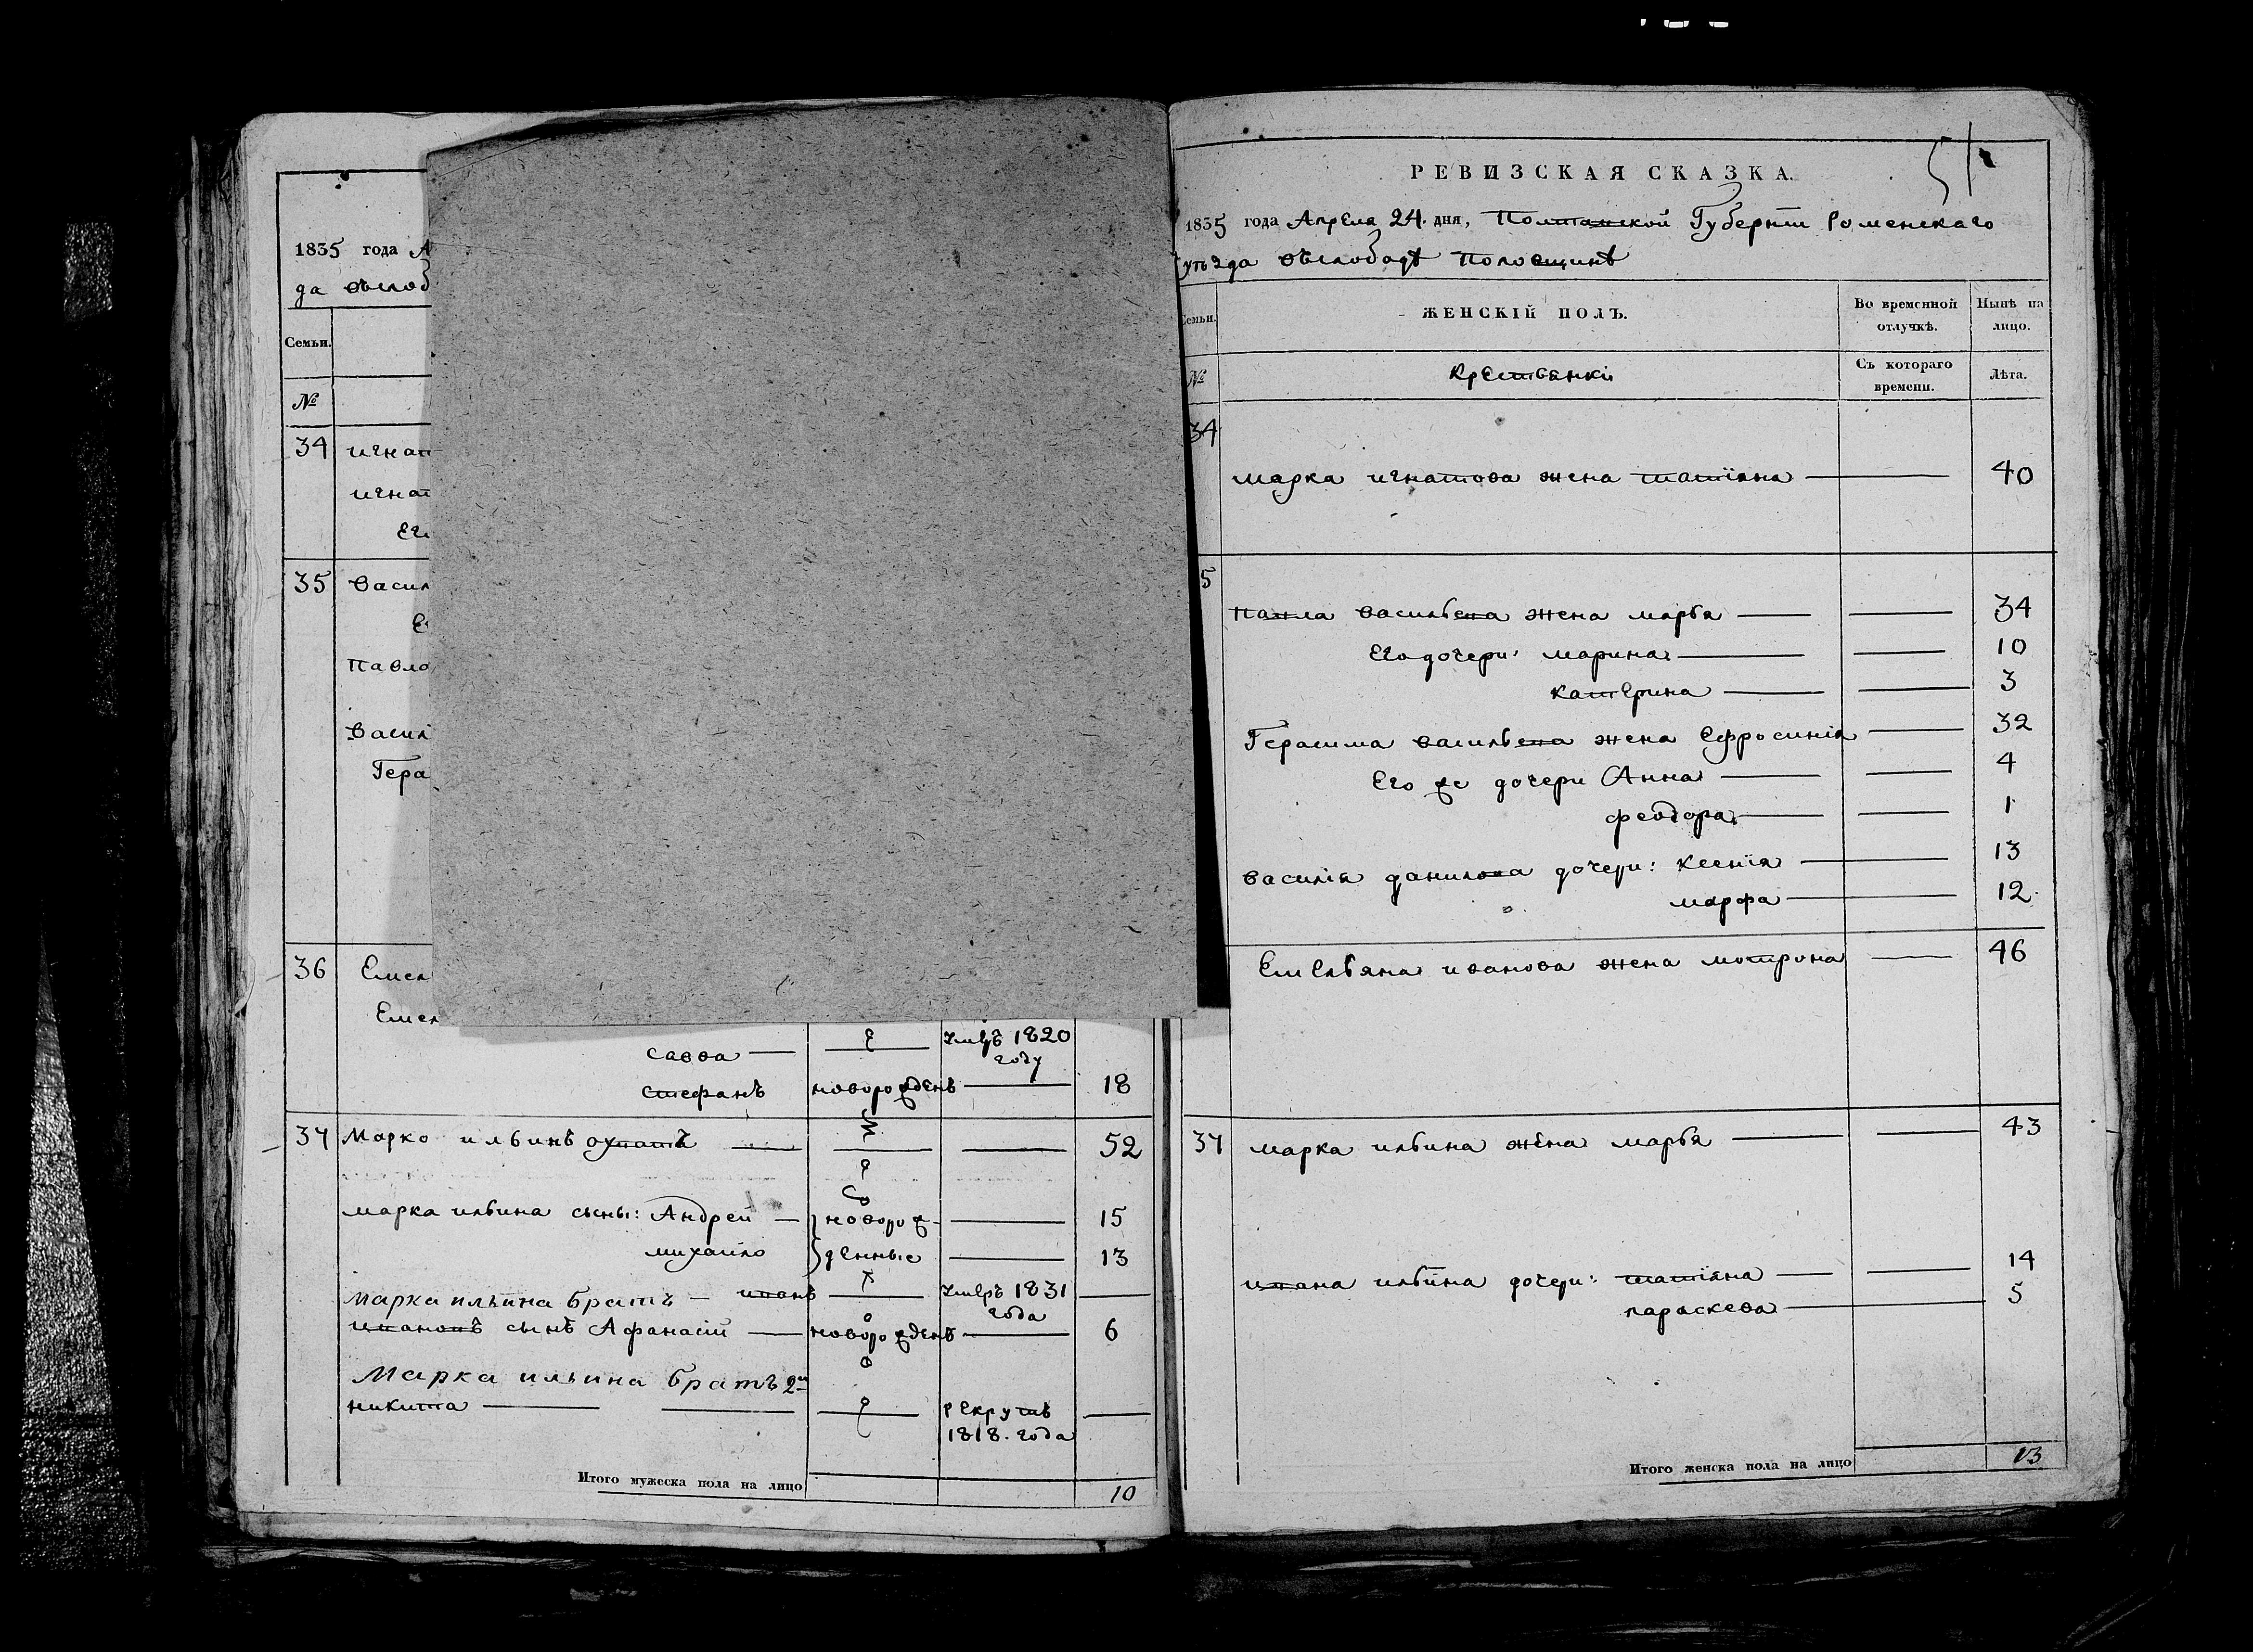 1835 года А
да въслоб
Семьи.
№
34 игнат
игнат
Его
35 Васил
Е
Павло
Васил
Гера
36 Емел
Емел
савва — умеръ 1820
году
стефанъ новорожденъ — 18
37 Марко ильинъ — — 52
марка ильина сыны: Андрей — новорож- — 15
михайло денные — 13
марка ильина братъ — иванъ — умеръ 1831 —
года
ивановъ сынъ Афанасій — новорожденъ — 6
Марка ильина братъ 2й
никита — — рекрутъ —
1818. года
Итого мужеска пола на лицо 10
РЕВИЗСКАЯ СКАЗКА.
1835 года Апреля 24. дня, Полтавской Губерніи Роменскаго
уѣзда въслободѣ Половщинѣ
Семьи. ЖЕНСКІЙ ПОЛЪ. Во временной отлучкѣ. Нынѣ на лицо.
№ Крестьянки Съ котораго времени. Лѣта.
34
марка игнатова жена татіана — 40
5
павла васильева жена марья — — 34
Его дочери: марина — — 10
катерина — — 3
Герасима васильева жена Ефросинія — 32
Его же дочери Анна — — 4
феодора — — 1
василія данилова дочери: ксенія — 13
марфа — 12
Емельяна иванова жена мотрона — 46
37 марка ильина жена марья — — 43
ивана ильина дочери: татіана — — 14
параскева — 5
Итого женска пола на лицо 13